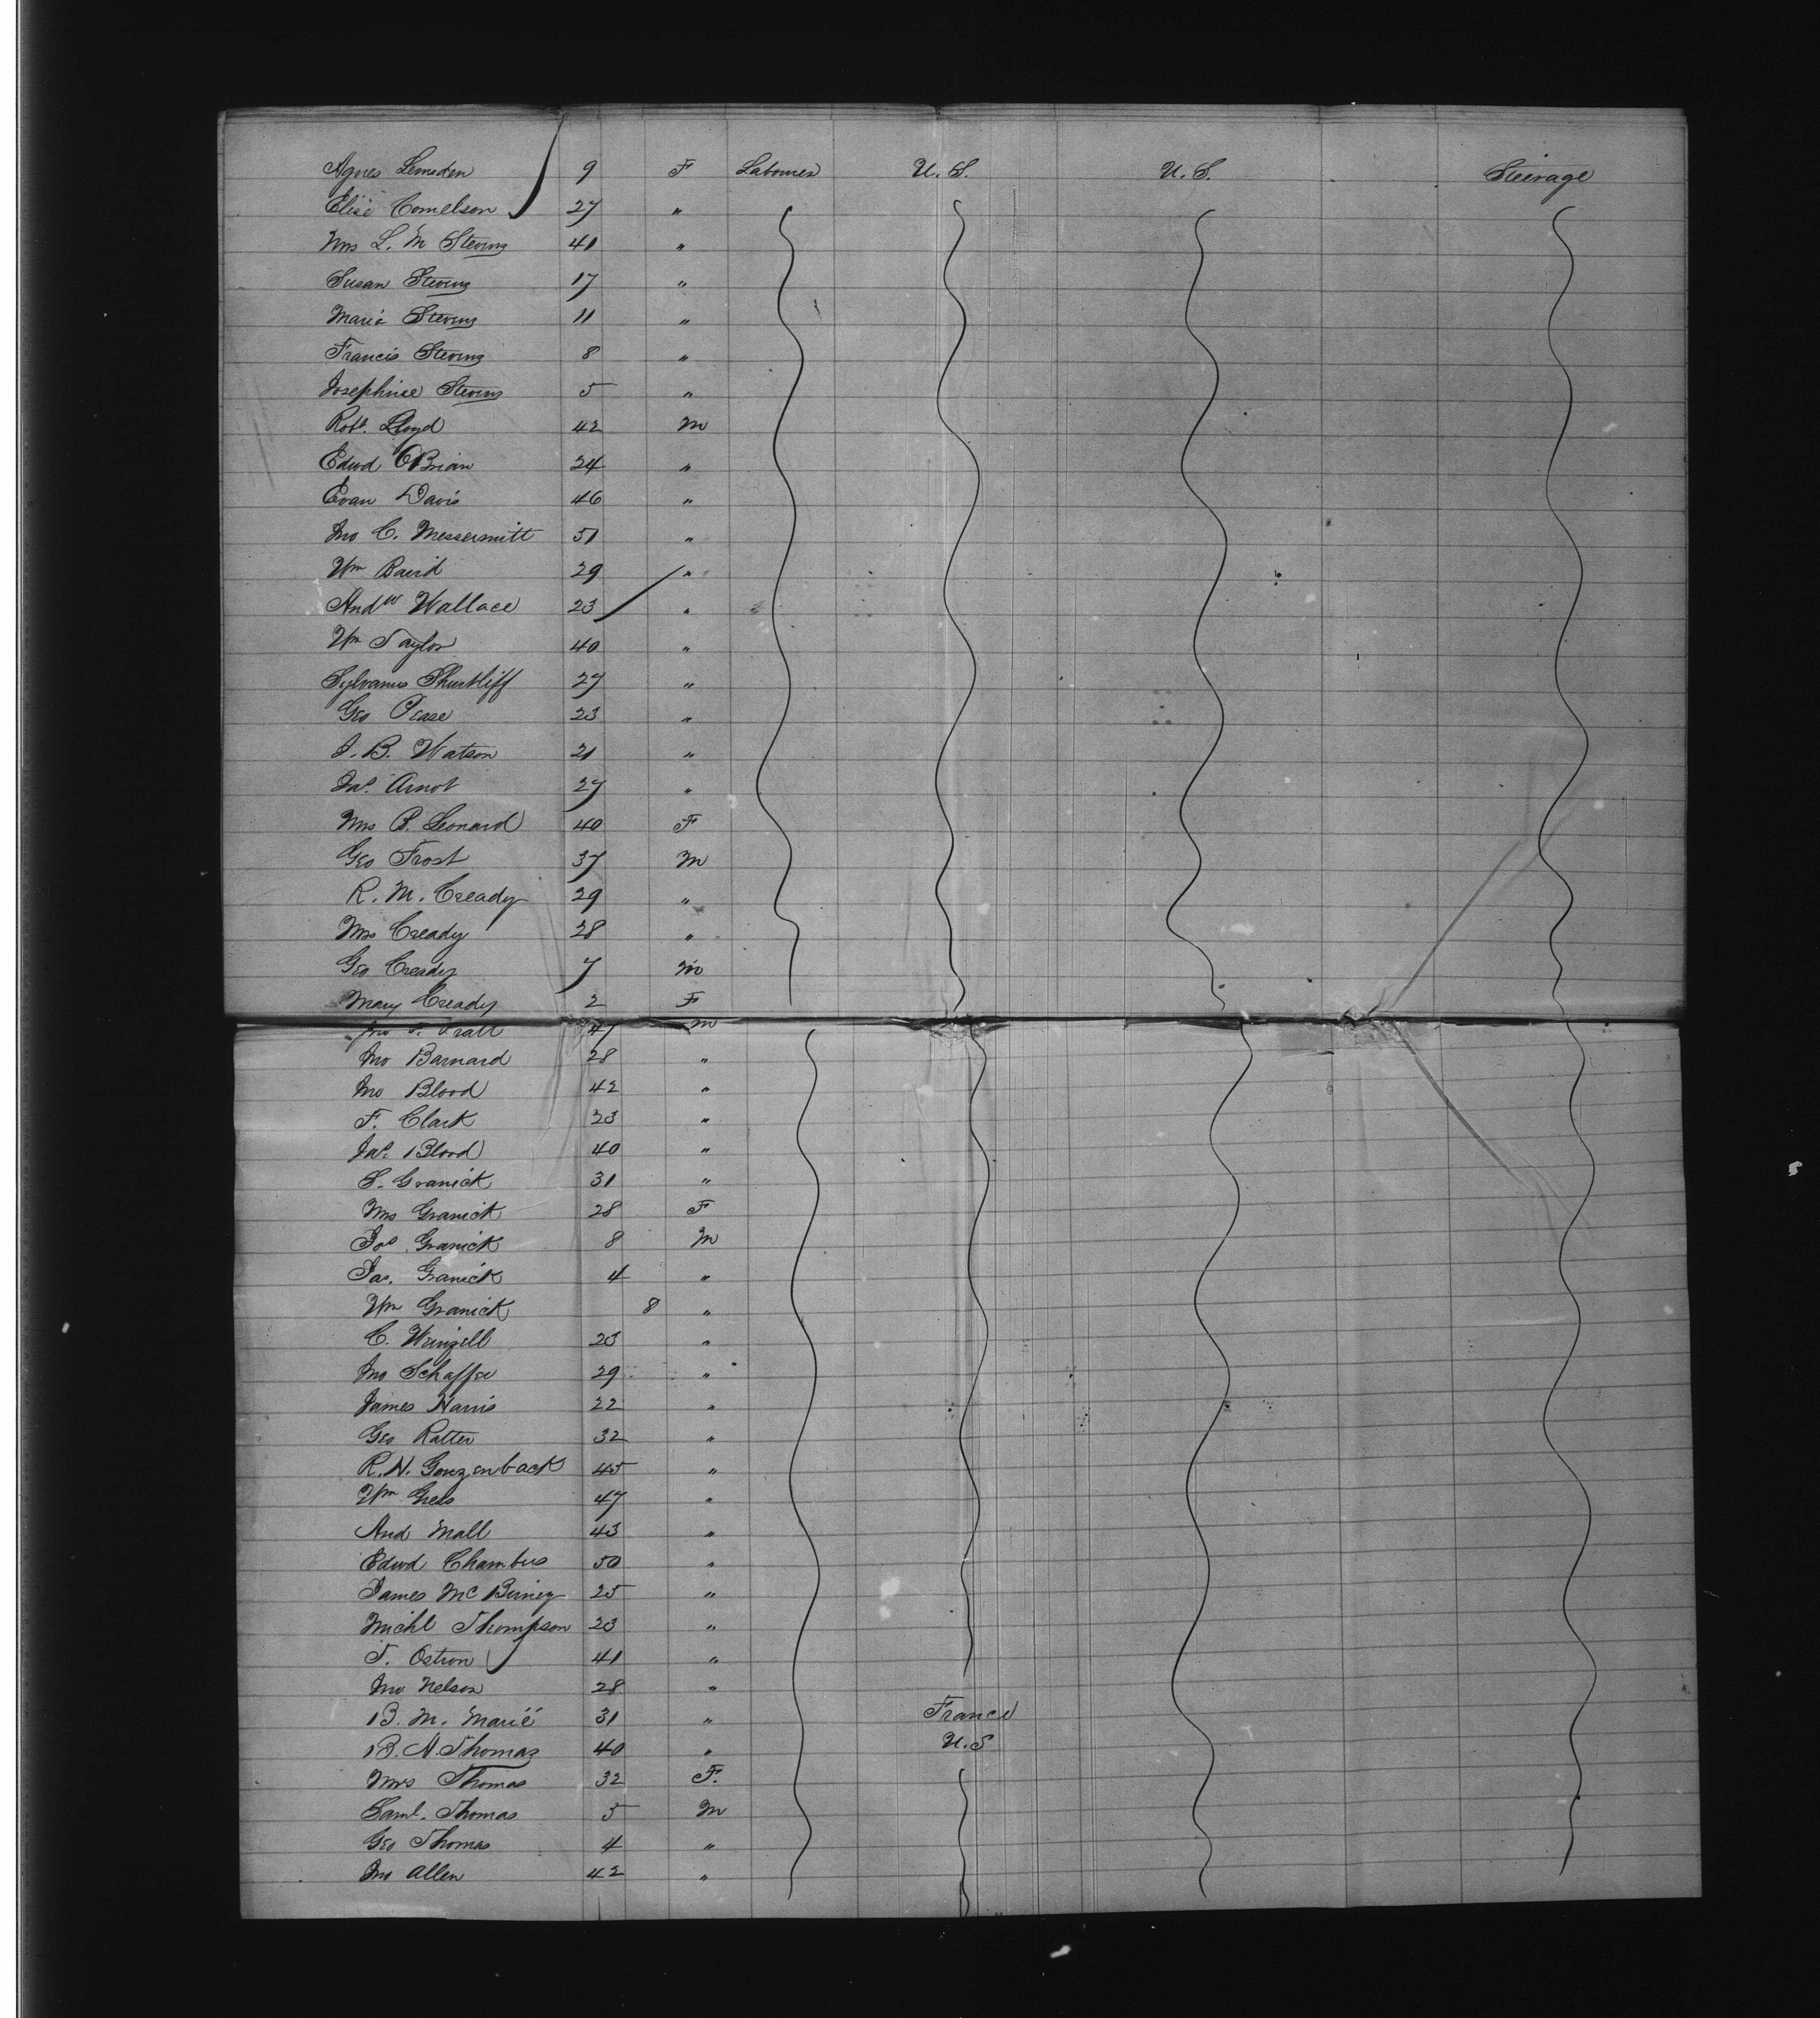 Agnes Lemsden 9 F Labourer U.S. U.S. Steerage
Elise Cornelson 27 "
Mrs L. M Stevens 41 "
Susan Stevens 17 "
Maria Stevens 11 "
Francis Stevens 8 "
Josephine Stevens 5 "
Robt. Lloyd 42 M
Edwd OBrian 24 "
Evan Davis 46 "
Jno C. Messersmitt 51 "
Wm Baird 29 "
Andw Wallace 23 "
Wm Taylor 40 "
Sylvanus Shurtliff 27 "
Geo Pease 23 "
J. B. Watson 21 "
Jas. Arnot 27 "
Mrs B. Leonard 40 F
Geo Frost 37 M
R. M. Cready 29 "
Mrs Cready 28 "
Geo Cready 7 M
Mary Cready 2 F
Jno Pratt 47 M
Jno Barnard 28 "
Jno Blood 42 "
F. Clark 23 "
Jas. Blood 40 "
S. Granick 31 "
Mrs Granick 28 F
Jos Granick 8 M
Jas. Granick 4 "
Wm Granick 8 "
C. Weinzell 23 "
Jno Schaffer 29 "
James Harris 22 "
Geo Ratter 32 "
R. N. Gonzenback 45 "
Wm Gees 47 "
And Mall 43 "
Edwd Chambers 50 "
James McBirney 25 "
Michl Thompson 23 "
T. Ostron 41 "
Jno Nelson 28 "
B. M. Marié 31 " France
B. N. Thomas 40 " U.S
Mrs Thomas 32 F.
Saml. Thomas 5 M
Geo Thomas 4 "
Jno Allen 42 "